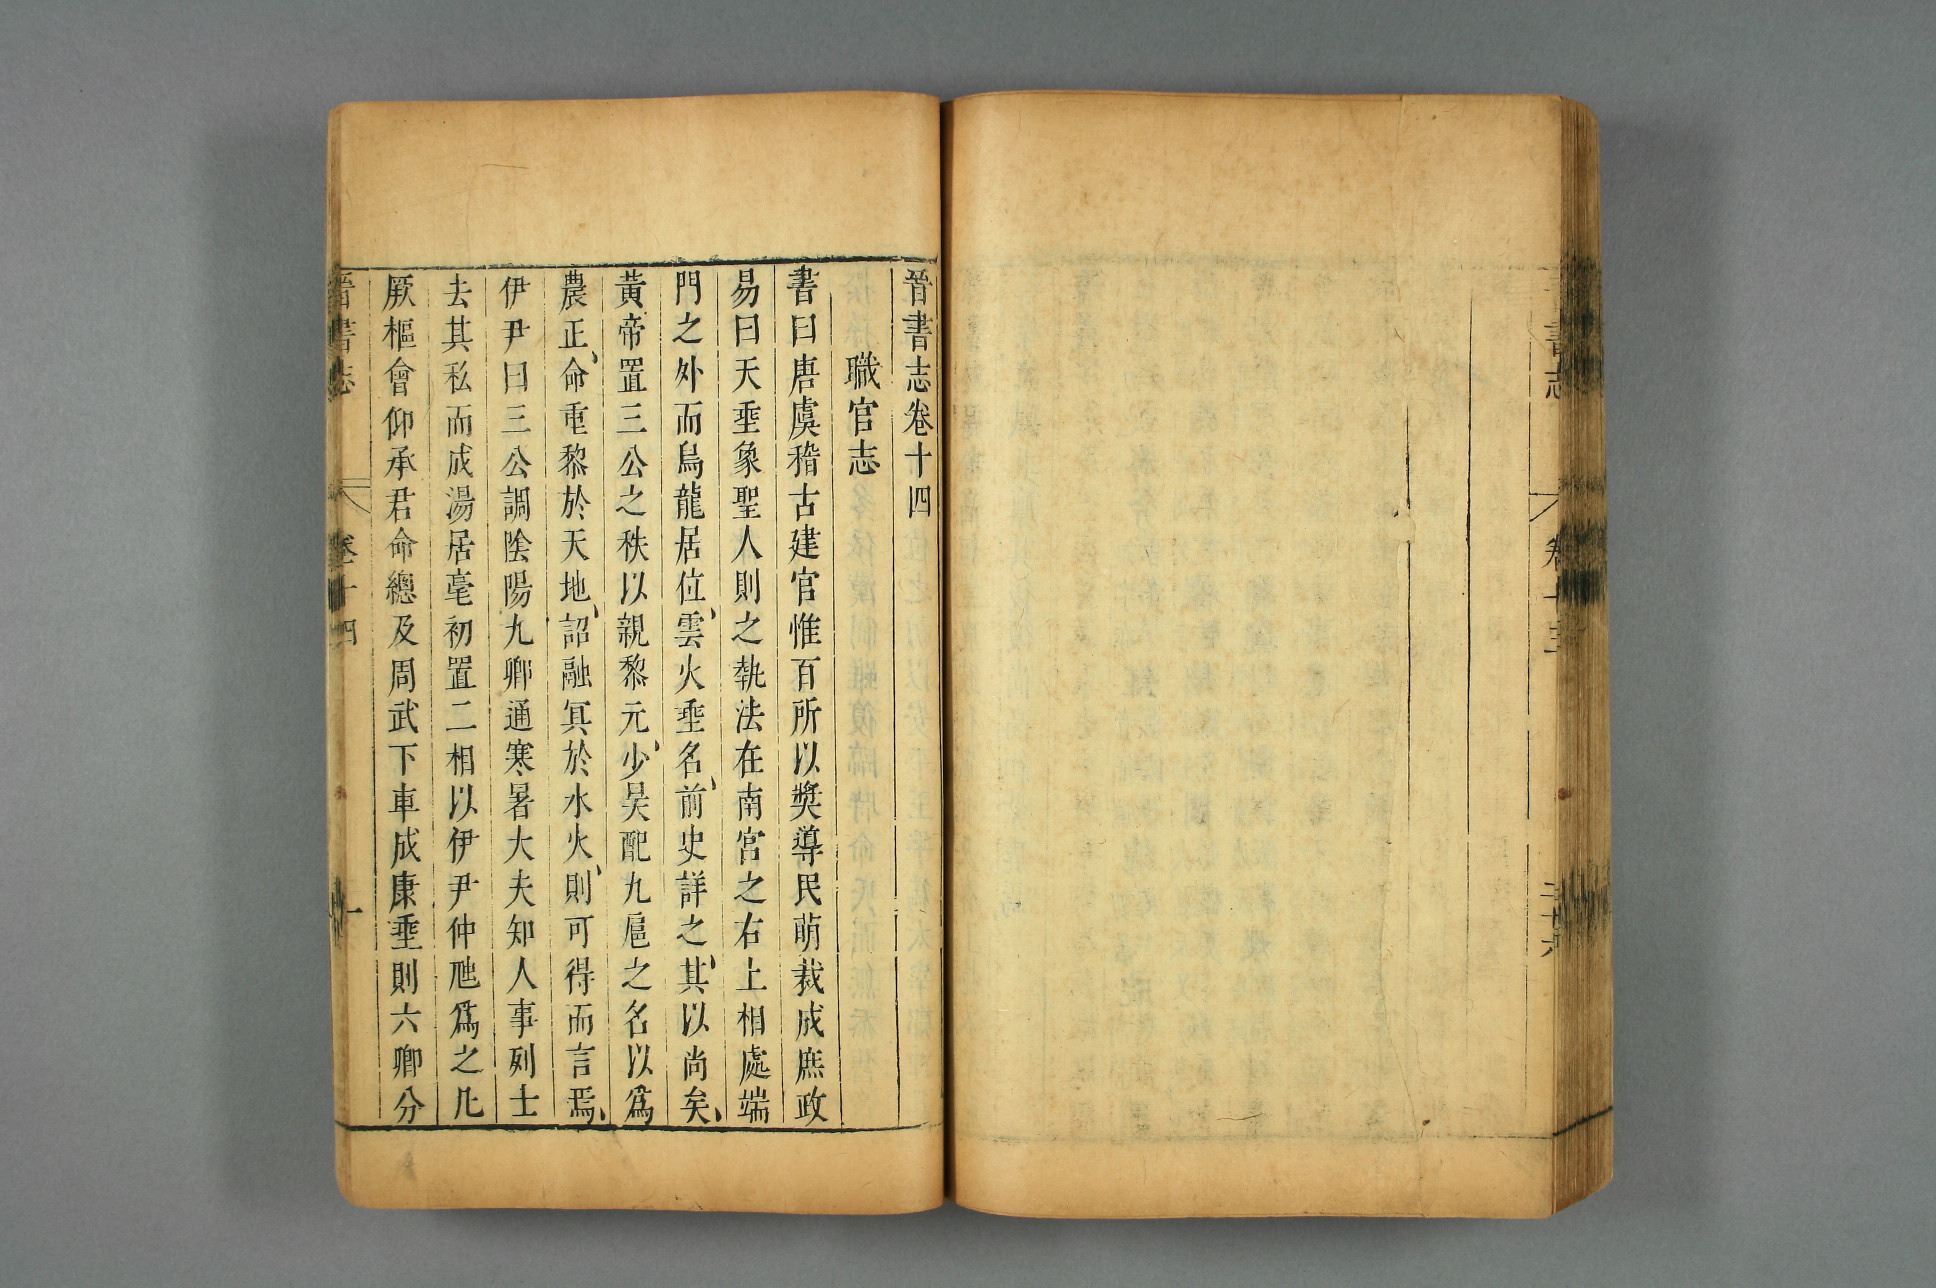 書志
卷十三
三十六
晉書志卷十四
職官志
書曰唐虞稽古建官惟百所以奬導民萌裁成庶政
易曰天垂象聖人則之執法在南宮之右上相處端
門之外而鳥龍居位雲火垂名前史詳之其以尚矣
黃帝置三公之秩以親黎元少昊配九扈之名以爲
農正命重黎於天地詔融冥於水火則可得而言焉
伊尹曰三公調陰陽九卿通寒暑大夫知人事列士
去其私而成湯居亳初置二相以伊尹仲虺爲之凡
厥樞會仰承君命總及周武下車成康垂則六卿分
晉書志
卷十四
一